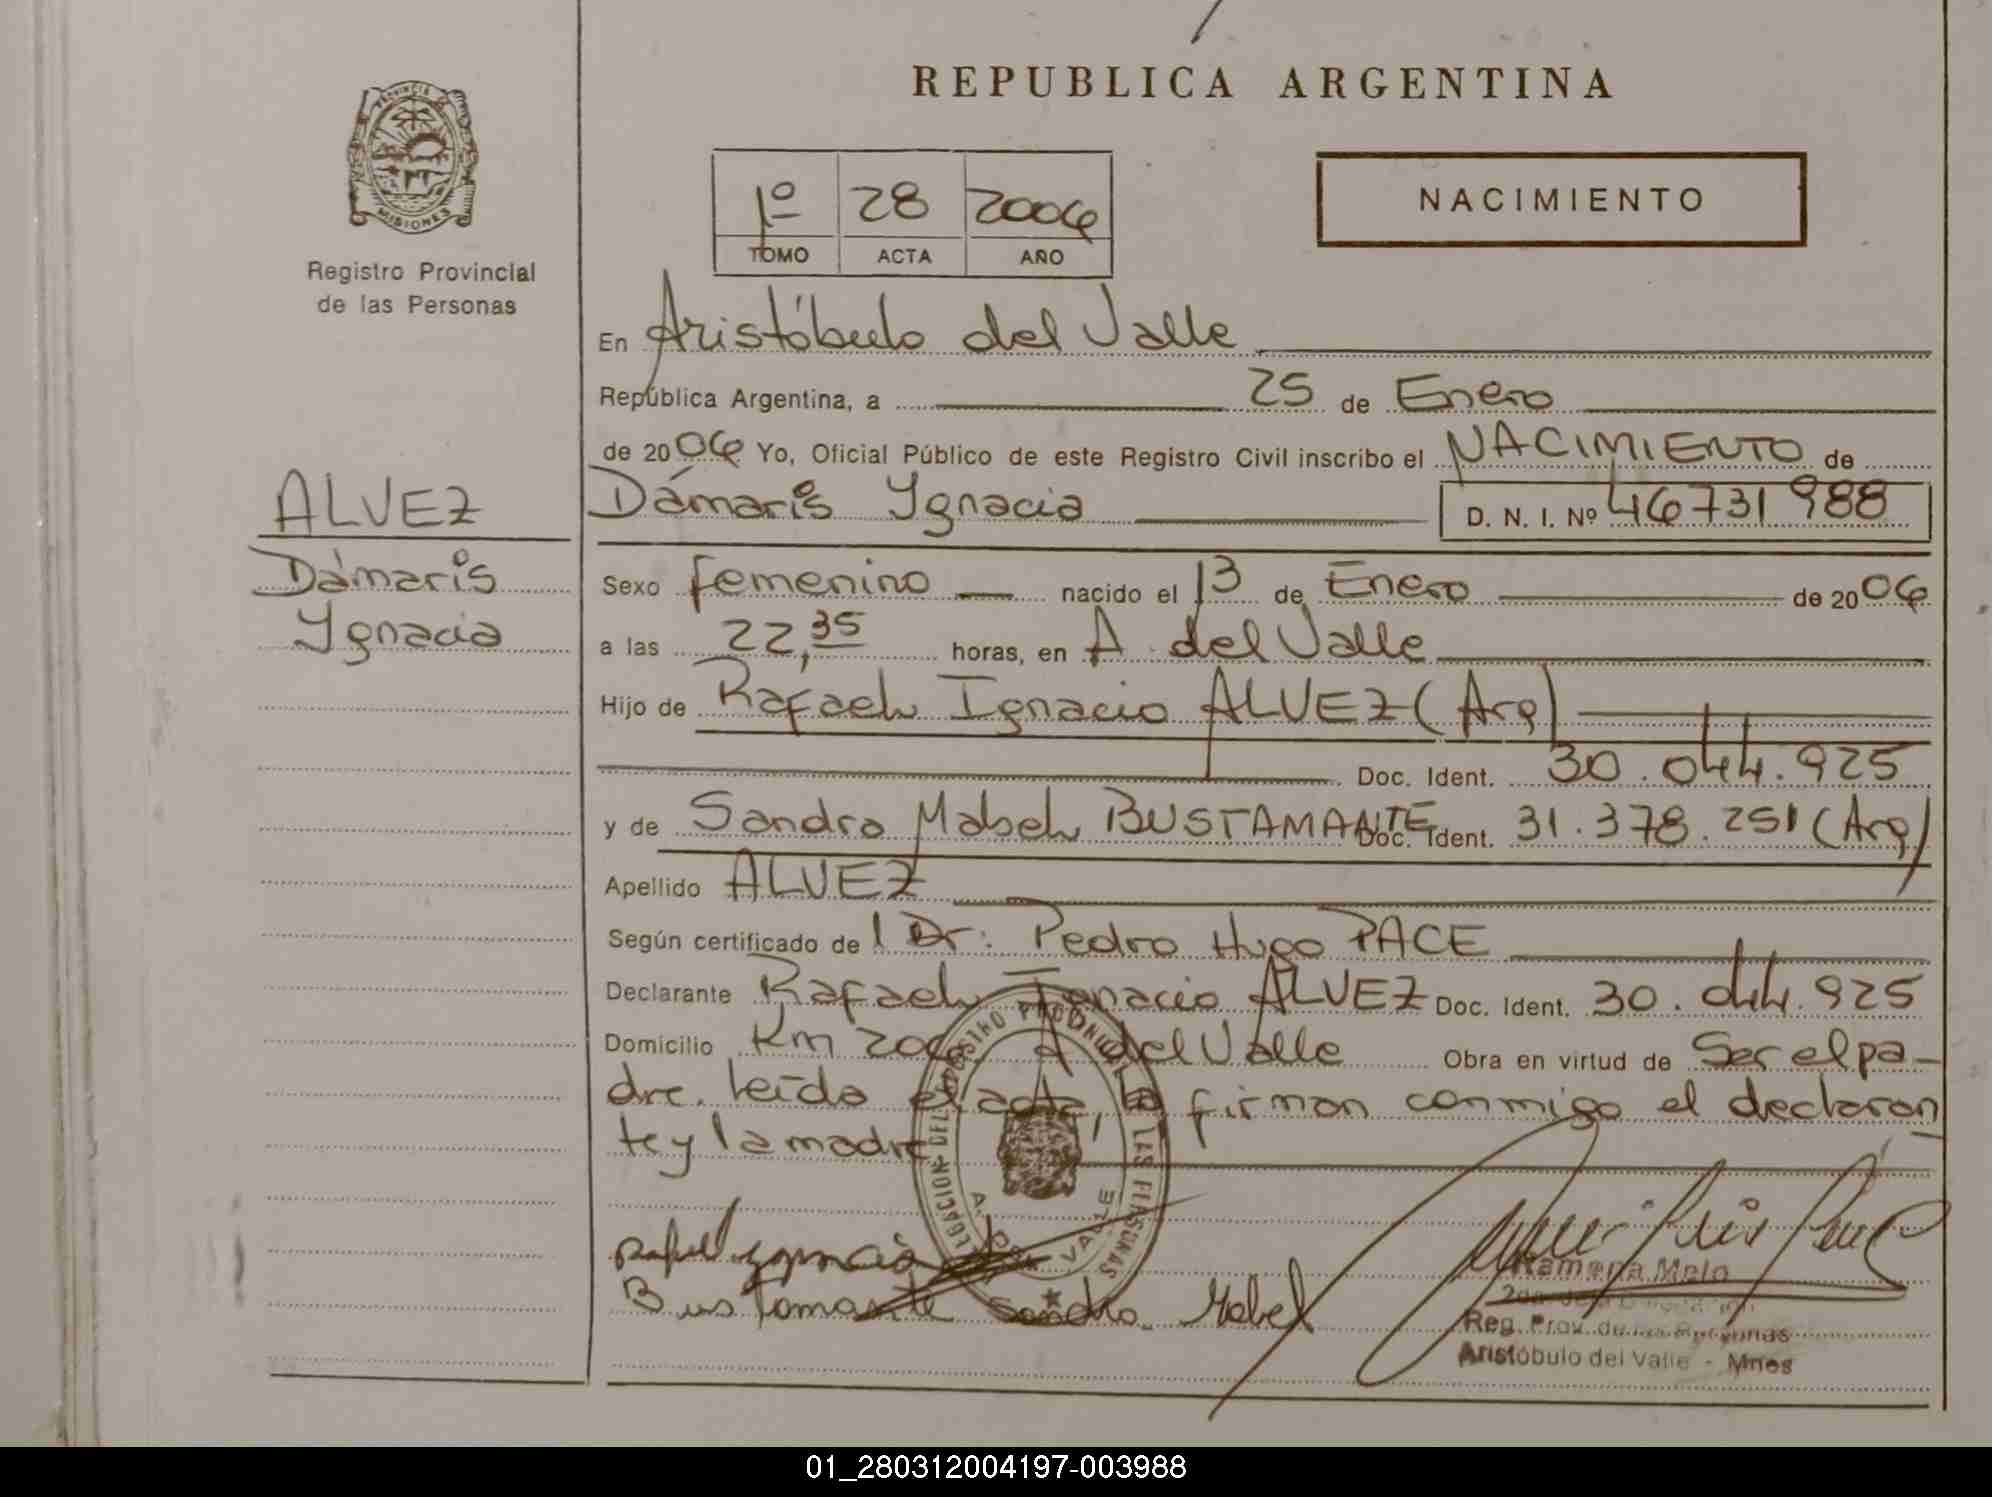 REPUBLICA ARGENTINA
PROVINCIA DE
MISIONES
Registro Provincial
de las Personas
1º 28 2006
TOMO ACTA AÑO
NACIMIENTO
En Aristóbulo del Valle
República Argentina, a 25 de Enero
de 2006 Yo, Oficial Público de este Registro Civil inscribo el NACIMIENTO de
Dámaris Ygnacia D. N. I. Nº 46731988
ALVEZ
Dámaris
Ygnacia
Sexo femenino nacido el 13 de Enero de 2006
a las 22,35 horas, en A. del Valle
Hijo de Rafael Ignacio ALVEZ (Arg)
Doc. Ident. 30.044.925
y de Sandra Mabel BUSTAMANTE Doc. Ident. 31.378.251 (Arg)
Apellido ALVEZ
Según certificado de l Dr: Pedro Hugo PACE
Declarante Rafael Ignacio ALVEZ Doc. Ident. 30.044.925
Domicilio Km 200 A del Valle Obra en virtud de Ser el pa-
dre. Leída el acta, la firman conmigo el declaran
te y la madre
A. DEL VALLE
Bustamante Sandra Mabel
Ramona Melo
Reg. Prov. de las Personas
Aristóbulo del Valle - Mnes
01_280312004197-003988